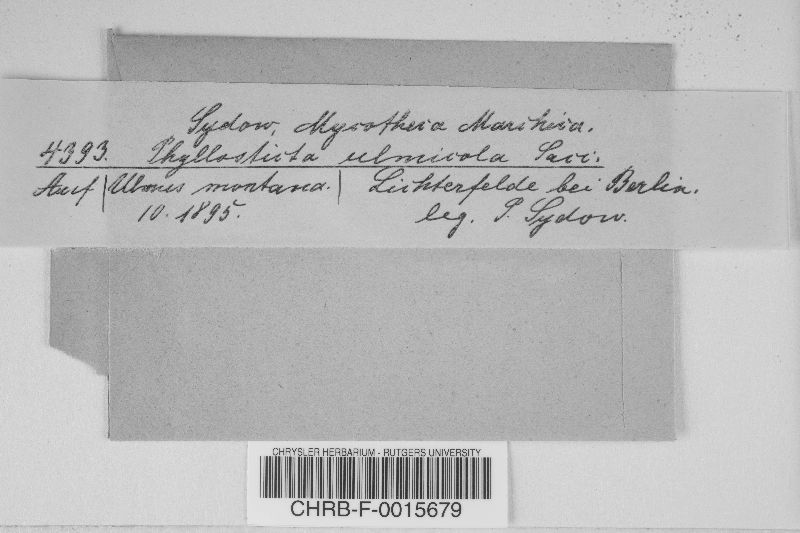 Sydow, Mycotheca Marchica.
4393. Phyllosticta ulmicola Sacc.
Auf | Ulmus montana. | Lichterfelde bei Berlin.
10. 1895. leg. P. Sydow.
CHRYSLER HERBARIUM - RUTGERS UNIVERSITY
CHRB-F-0015679